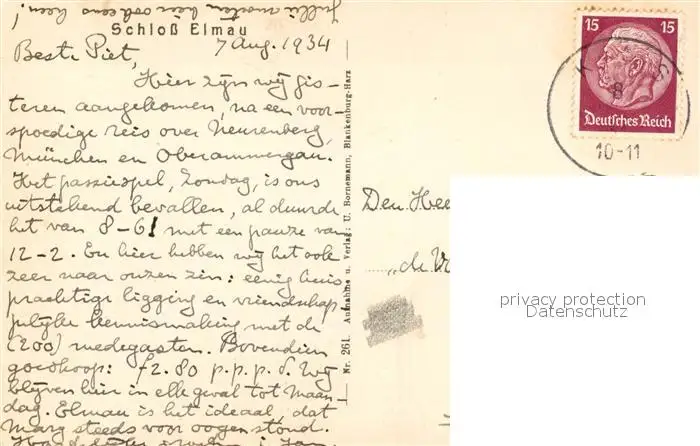 Jullie moeten hier ook eens heen!
Schloß Elmau
7 Aug. 1934
Beste Piet,
Hier zijn wij gis-
teren aangekomen, na een voor-
spoedige reis over Neurenberg,
München en Oberammergau.
Het passiespel, Zondag, is ons
uitstekend bevallen, al duurde
het van 8-6! met een pauze van
12-2. En hier hebben wij het ook
zeer naar onzen zin: eenig huis
prachtige ligging en vriendschap
pelijke kennismaking met de
(200) medegasten. Bovendien
goedkoop: f2.80 p.p.p.d. Wij
blijven hier in elk geval tot Maan-
dag. Elmau is het ideaal, dat
Marg steeds voor oogen stond.
Nr. 261. Aufnahme u. Verlag: U. Bornemann, Blankenburg-Harz
15 15
Deutsches Reich
8
10-11
Den Hee
"de V
privacy protection
Datenschutz